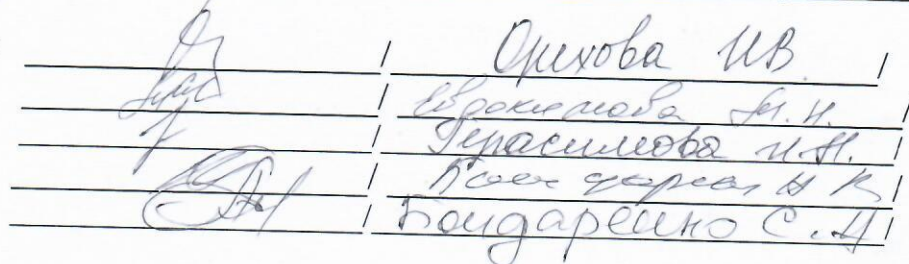 / Орехова И.В. /
/ Евдокимова М.Н. /
/ Герасимова Н.Н. /
/ Н К /
/ Бондаренко С.А /